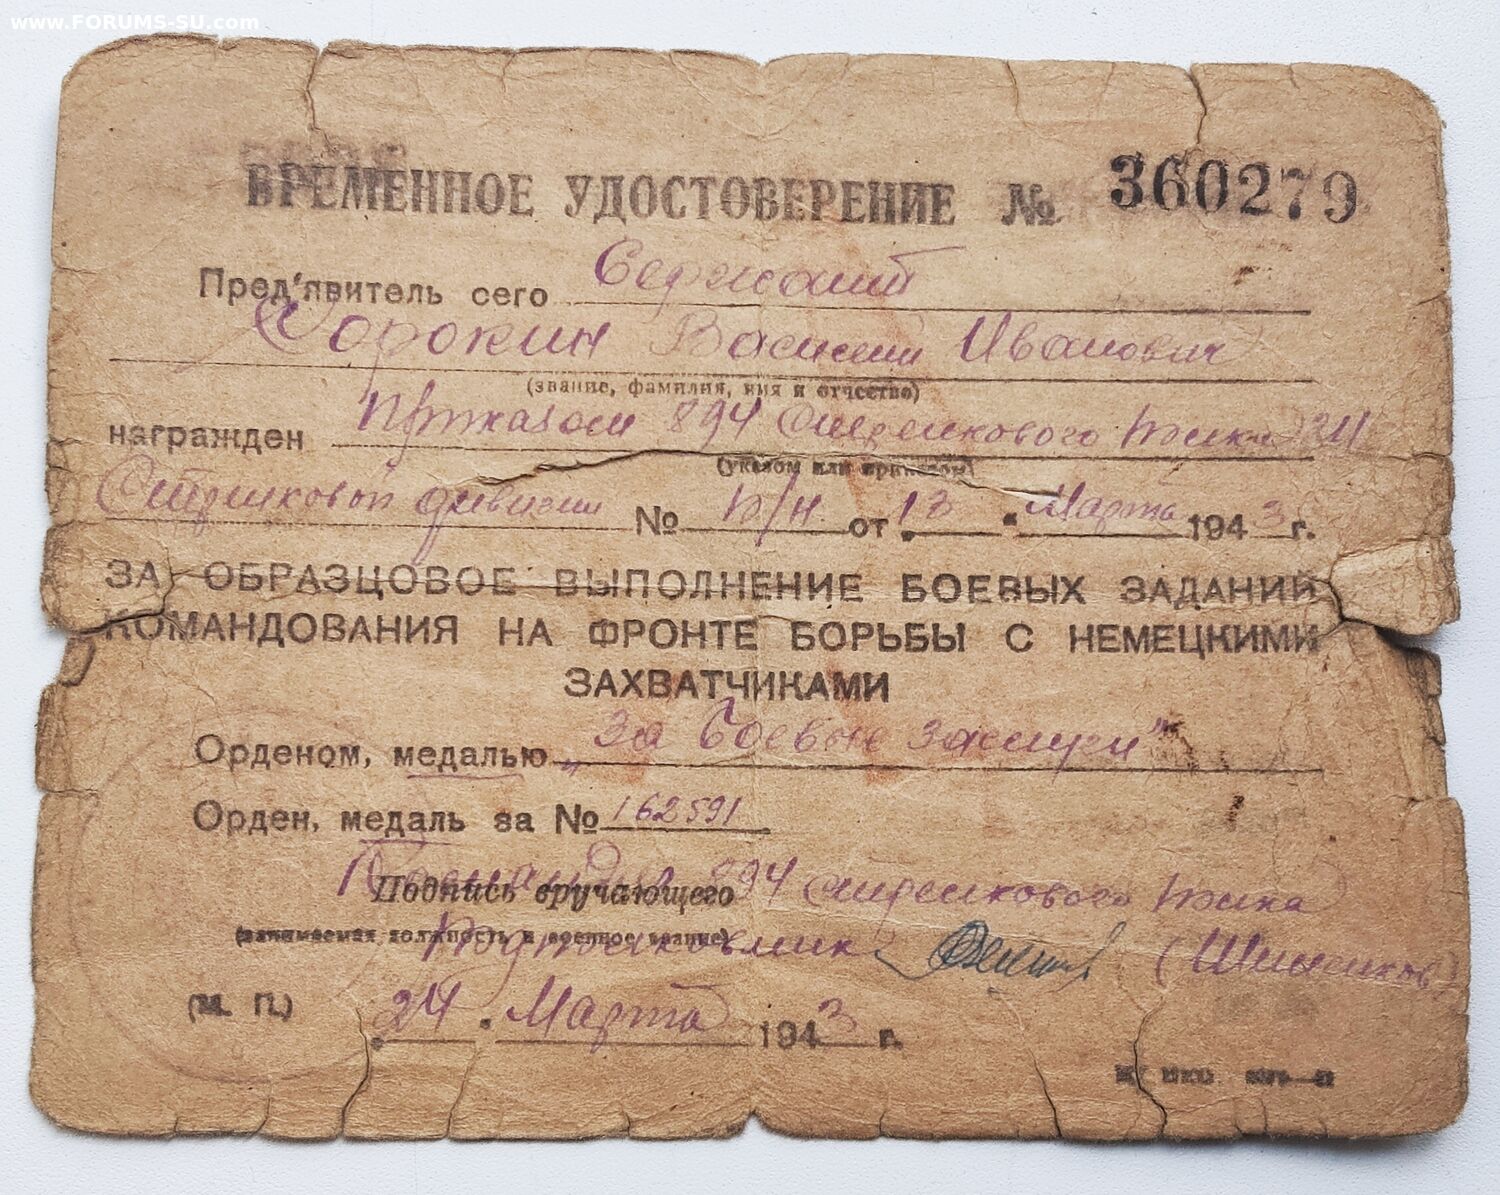 www.FORUMS-SU.com
ВРЕМЕННОЕ УДОСТОВЕРЕНИЕ № 360279
Пред'явитель сего Сержант
Сорокин Василий Иванович
(звание, фамилия, имя и отчество)
награжден Приказом 894 стрелкового полка 211
(указом или приказом)
Стрелковой дивизии № п/н от „13 “ Марта 1943 г.
ЗА ОБРАЗЦОВОЕ ВЫПОЛНЕНИЕ БОЕВЫХ ЗАДАНИЙ
КОМАНДОВАНИЯ НА ФРОНТЕ БОРЬБЫ С НЕМЕЦКИМИ
ЗАХВАТЧИКАМИ
Орденом, медалью „За Боевые заслуги"
Орден, медаль за № 162591
Командир 894 стрелкового полка
Подпись вручающего
(занимаемая должность и военное звание)
Подполковник (Шишков)
(М. П.) „24 “ Марта 1943 г.